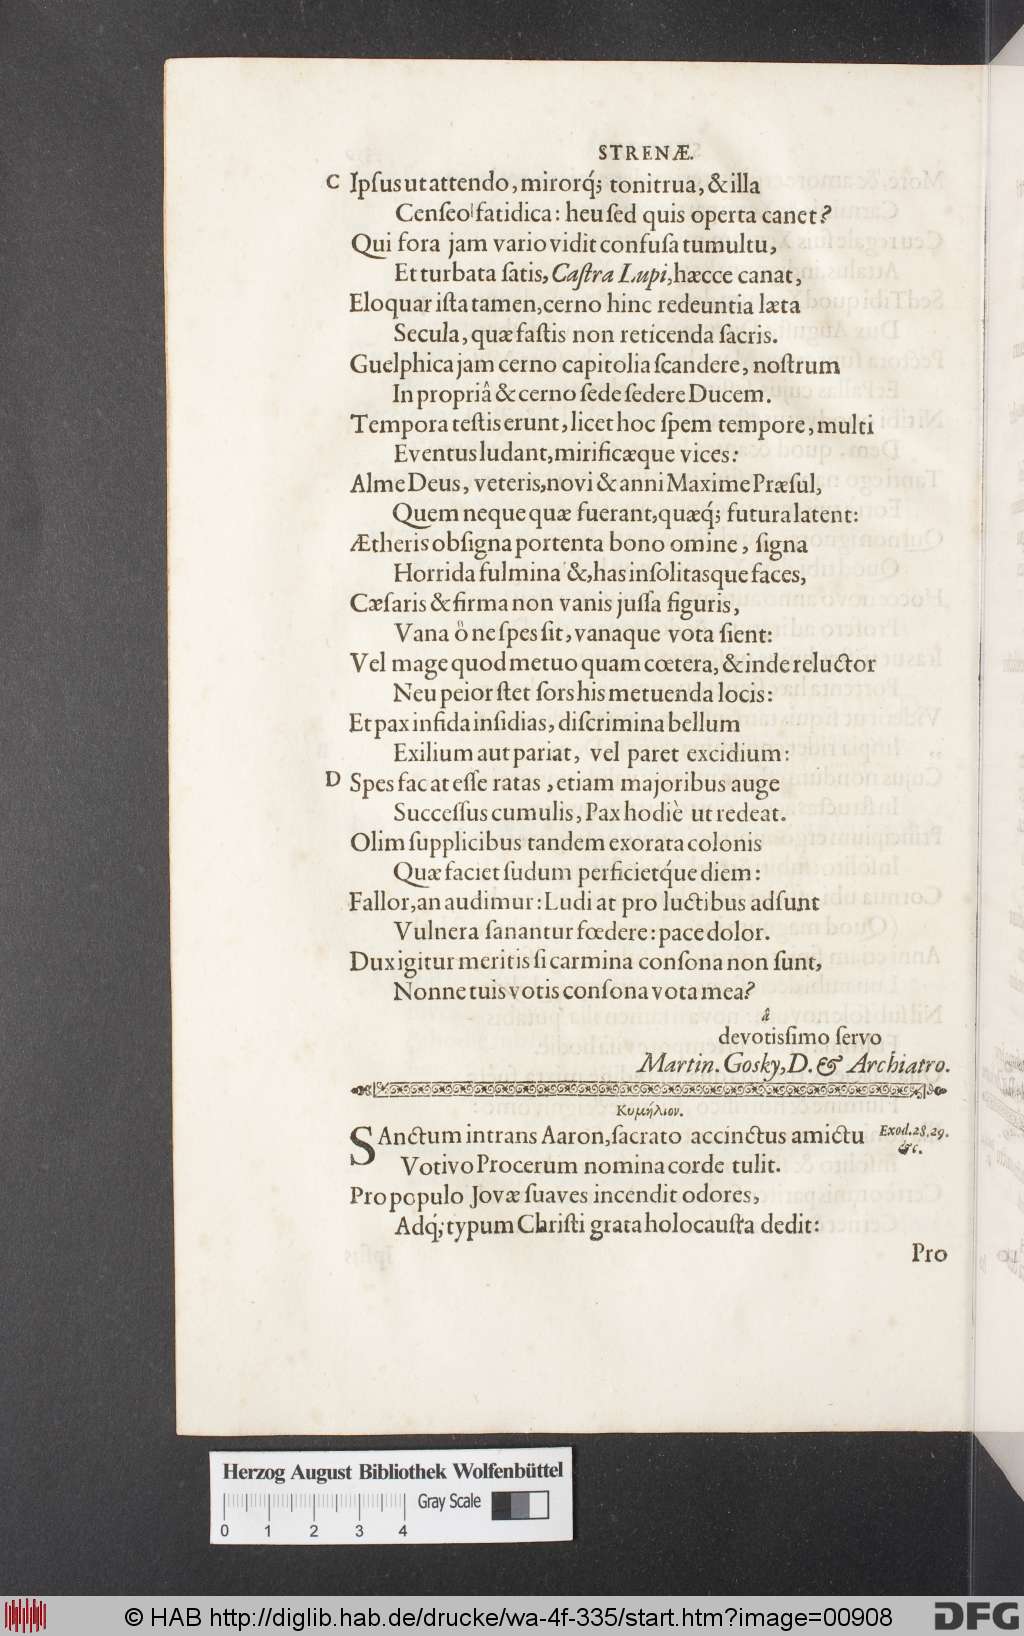 STRENÆ.
C Ipſus ut attendo, mirorq́; tonitrua, & illa
Cenſeo fatidica: heu ſed quis operta canet?
Qui fora jam vario vidit confuſa tumultu,
Et turbata ſatis, Caſtra Lupi, hæcce canat,
Eloquar iſta tamen, cerno hinc redeuntia læta
Secula, quæ faſtis non reticenda ſacris.
Guelphica jam cerno capitolia ſcandere, noſtrum
In propriâ & cerno ſede ſedere Ducem.
Tempora teſtis erunt, licet hoc ſpem tempore, multi
Eventus ludant, mirificæque vices:
Alme Deus, veteris, novi & anni Maxime Præſul,
Quem neque quæ fuerant, quæq́; futura latent:
Ætheris obſigna portenta bono omine, ſigna
Horrida fulmina &, has inſolitasque faces,
Cæſaris & firma non vanis juſſa figuris,
Vana ô ne ſpes ſit, vanaque vota ſient:
Vel mage quod metuo quam cœtera, & inde reluctor
Neu peior ſtet ſors his metuenda locis:
Et pax infida inſidias, diſcrimina bellum
Exilium aut pariat, vel paret excidium:
D Spes fac at eſſe ratas, etiam majoribus auge
Succeſſus cumulis, Pax hodiè ut redeat.
Olim ſupplicibus tandem exorata colonis
Quæ faciet ſudum perficietq́ue diem:
Fallor, an audimur: Ludi at pro luctibus adſunt
Vulnera ſanantur fœdere: pace dolor.
Dux igitur meritis ſi carmina conſona non ſunt,
Nonne tuis votis conſona vota mea?
â
devotisſimo ſervo
Martin. Gosky, D. & Archiatro.
Κυμήλιον.
SAnctum intrans Aaron, ſacrato accinctus amictu Exod. 28. 29.
&c.
Votivo Procerum nomina corde tulit.
Pro populo Jovæ ſuaves incendit odores,
Adq́; typum Chriſti grata holocauſta dedit:
Pro
Herzog August Bibliothek Wolfenbüttel
Gray Scale
0 1 2 3 4
© HAB http://diglib.hab.de/drucke/wa-4f-335/start.htm?image=00908
DFG